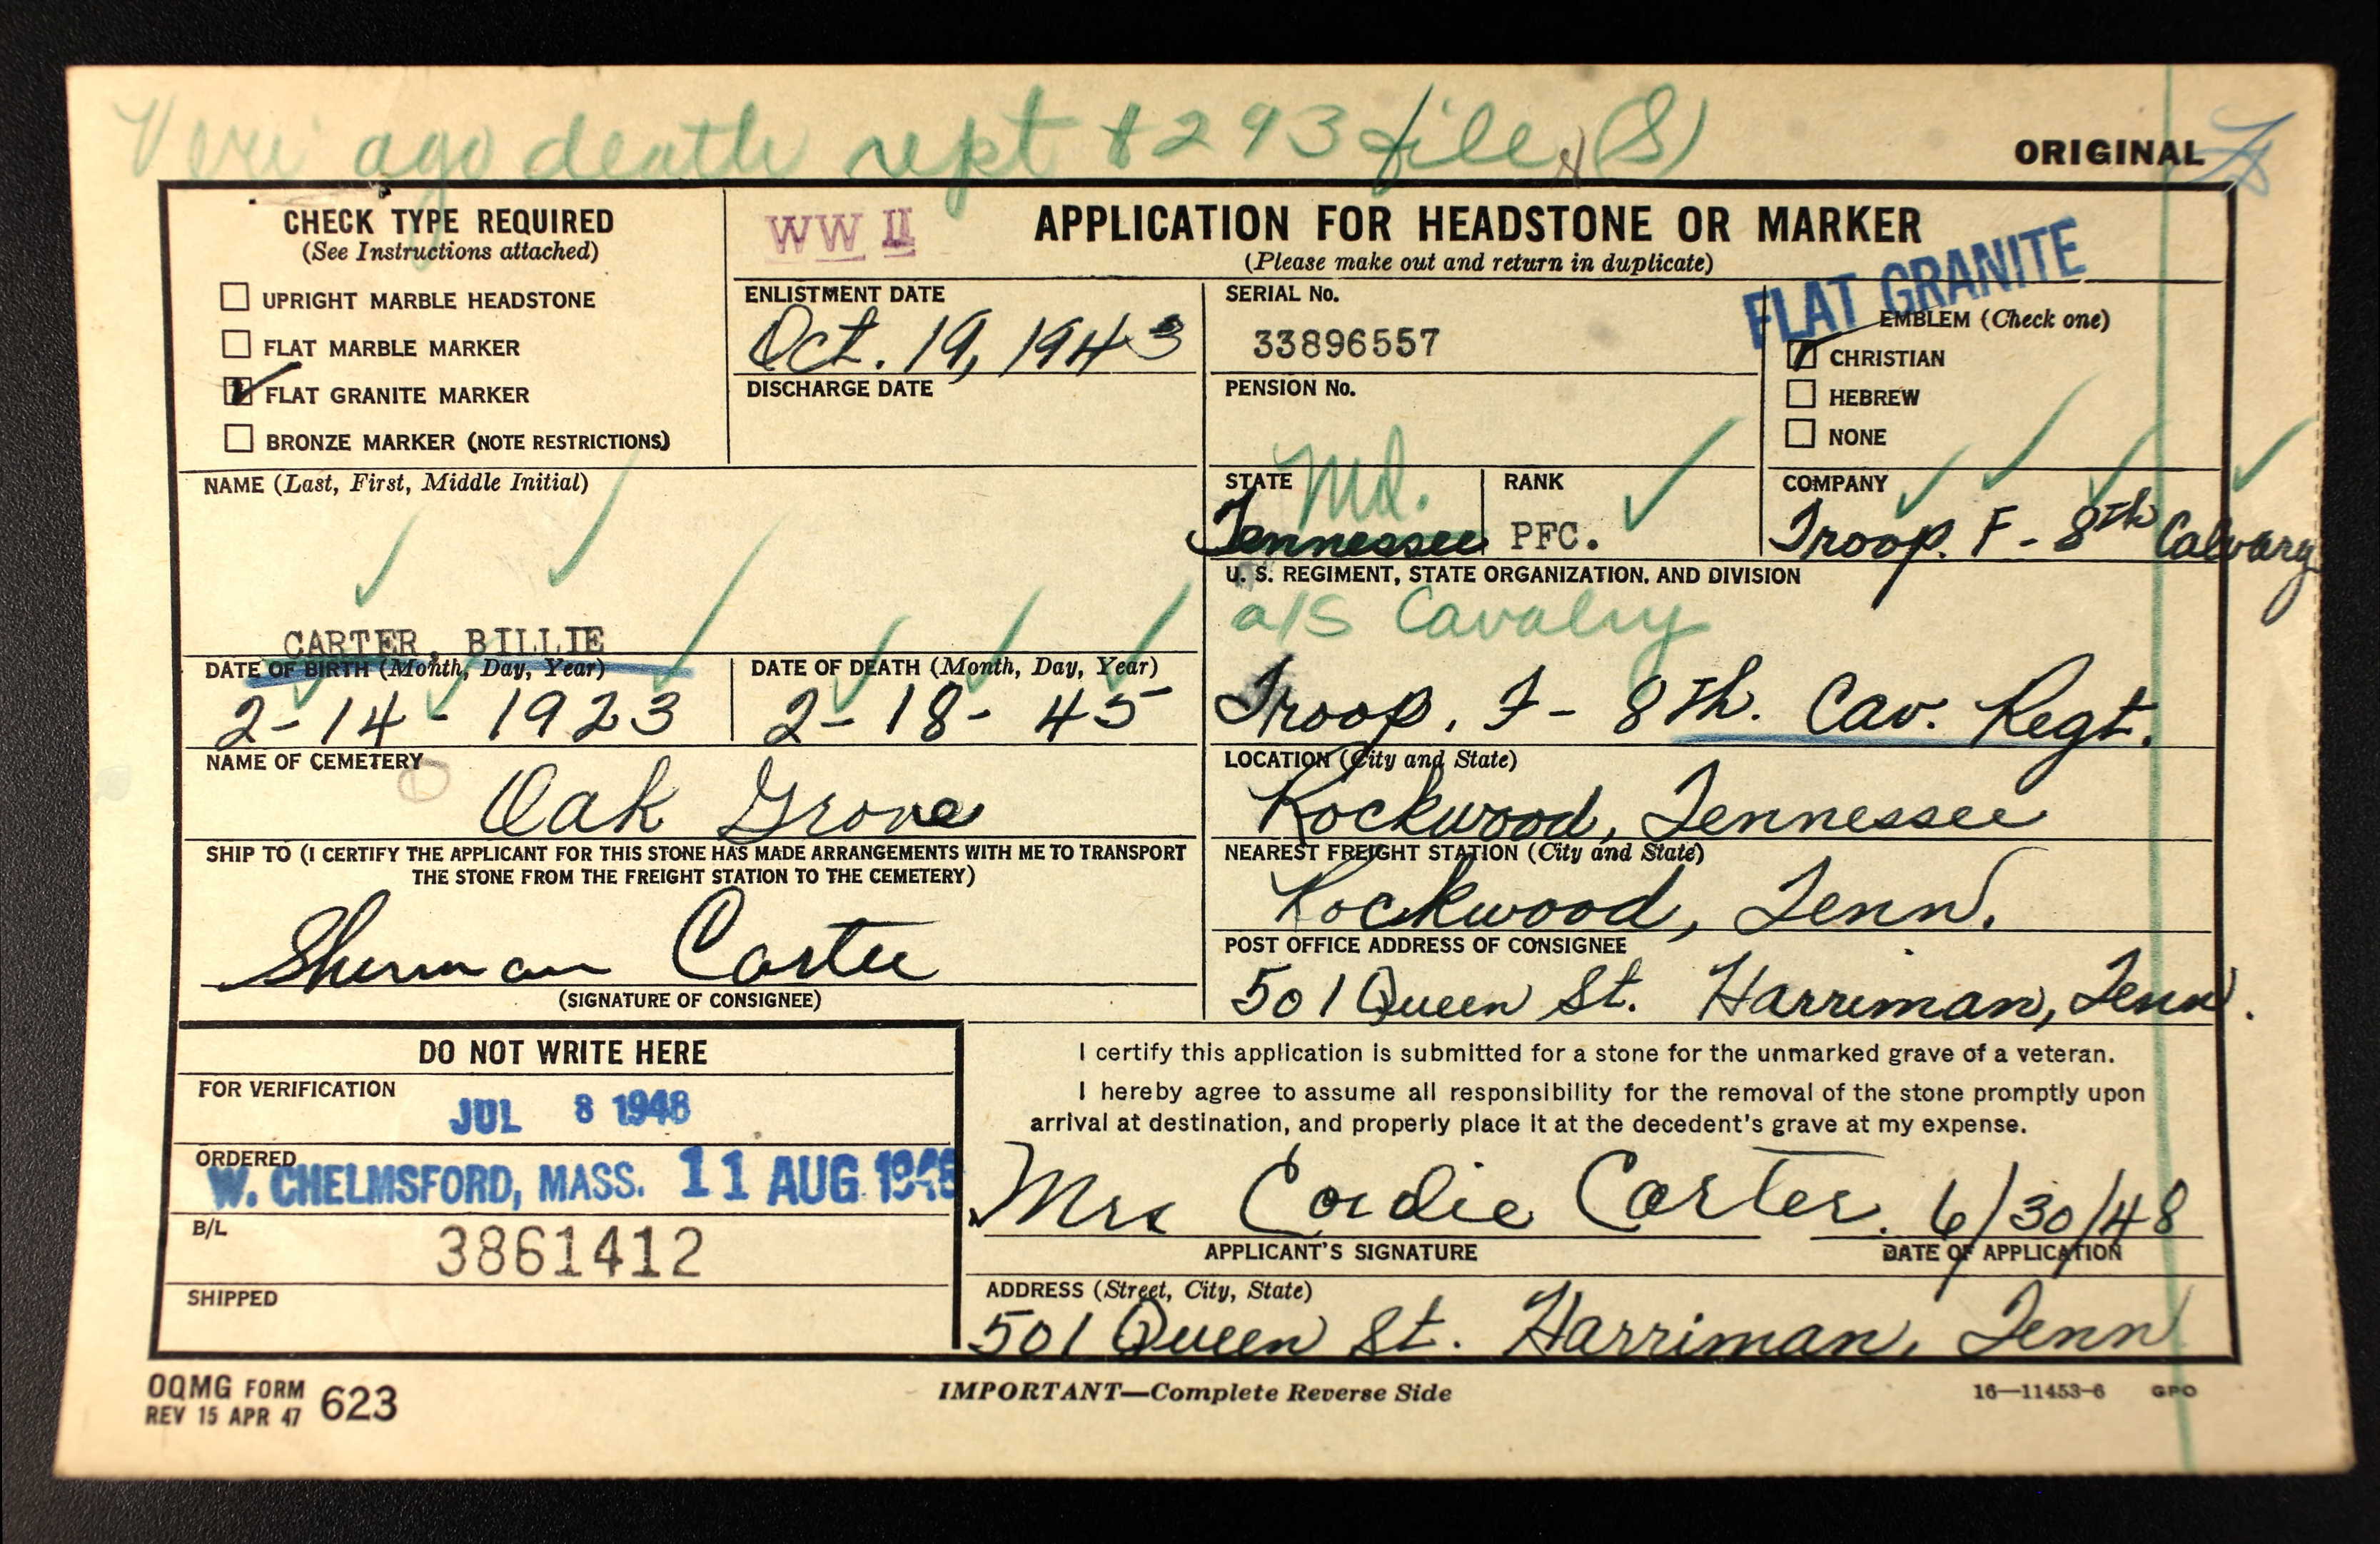 Veri ago death rept & 293 file (S)
ORIGINAL
CHECK TYPE REQUIRED
(See Instructions attached)
UPRIGHT MARBLE HEADSTONE
FLAT MARBLE MARKER
FLAT GRANITE MARKER
BRONZE MARKER (NOTE RESTRICTIONS)
WW II
APPLICATION FOR HEADSTONE OR MARKER
(Please make out and return in duplicate)
FLAT GRANITE
ENLISTMENT DATE
Oct. 19, 1943
DISCHARGE DATE
SERIAL No.
33896557
PENSION No.
EMBLEM (Check one)
CHRISTIAN
HEBREW
NONE
NAME (Last, First, Middle Initial)
CARTER, BILLIE
STATE
Md.
Tennessee
RANK
PFC.
COMPANY
Troop. F - 8th Calvary
U. S. REGIMENT, STATE ORGANIZATION, AND DIVISION
a/S Cavalry
Troop. F - 8th. Cav. Regt.
DATE OF BIRTH (Month, Day, Year)
2-14-1923
DATE OF DEATH (Month, Day, Year)
2-18-45
NAME OF CEMETERY
Oak Grove
LOCATION (City and State)
Rockwood, Tennessee
SHIP TO (I CERTIFY THE APPLICANT FOR THIS STONE HAS MADE ARRANGEMENTS WITH ME TO TRANSPORT
THE STONE FROM THE FREIGHT STATION TO THE CEMETERY)
Sherman Carter
(SIGNATURE OF CONSIGNEE)
NEAREST FREIGHT STATION (City and State)
Rockwood, Tenn.
POST OFFICE ADDRESS OF CONSIGNEE
501 Queen St. Harriman, Tenn.
DO NOT WRITE HERE
FOR VERIFICATION
JUL 8 1948
ORDERED
W. CHELMSFORD, MASS. 11 AUG 1948
B/L
3861412
SHIPPED
I certify this application is submitted for a stone for the unmarked grave of a veteran.
I hereby agree to assume all responsibility for the removal of the stone promptly upon
arrival at destination, and properly place it at the decedent's grave at my expense.
Mrs Cordie Carter. 6/30/48
APPLICANT'S SIGNATURE
DATE OF APPLICATION
ADDRESS (Street, City, State)
501 Queen St. Harriman, Tenn
OQMG FORM
REV 15 APR 47 623
IMPORTANT—Complete Reverse Side
16—11453-6 GPO